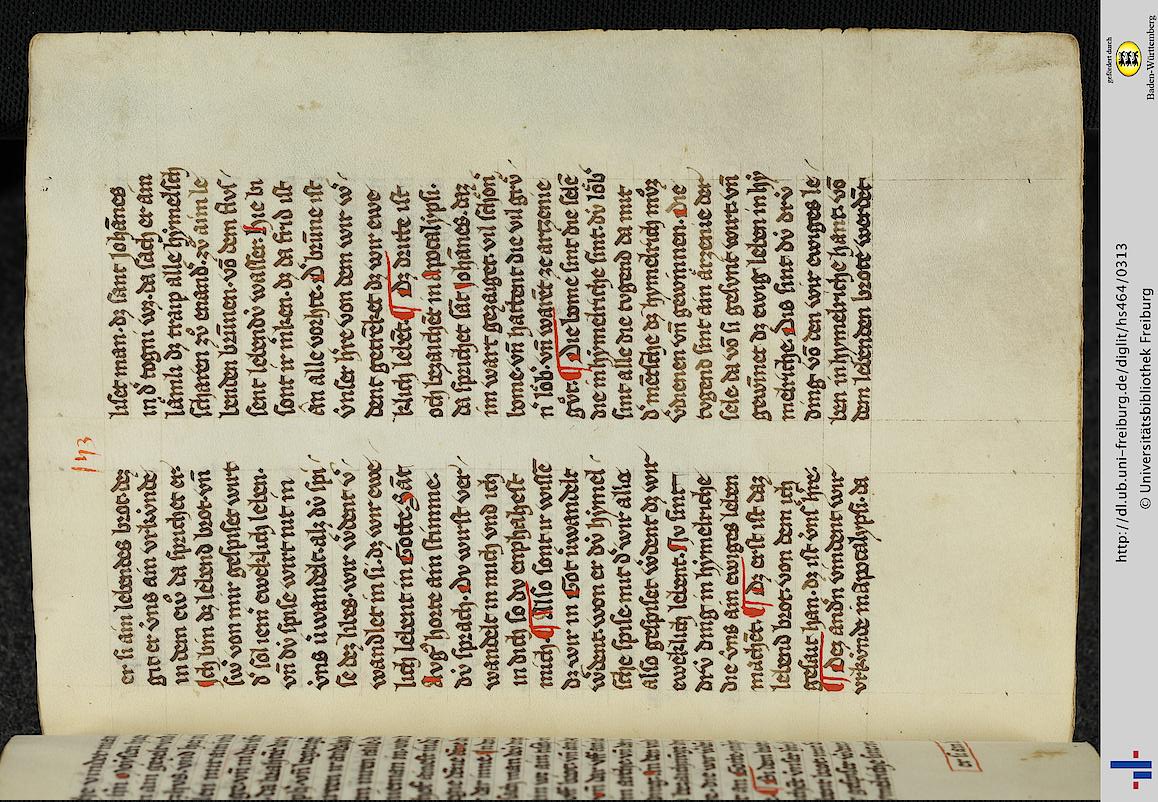 143
er si ain lebendes brot dez
git er vns ain vrkúnde
in dem ew̄. da sprichet er.
Ich bin dz lebend brot. vn̄
sw von mir gespiset wirt
d' sol iem̄ eweklich leben.
vn̄ dú spise wirt nit in
vns úwandelt. alz dv́ spi
se dez libes. wir w'dent v'
wandlet in si. dz wir ewe
lich lebent in Gotte. Sāt
Avg9 horte ain stimme.
dv́ sprach. Dv wirst ver
wandelt in mich vnd ich
in dich so dv enphahest
mich. Also sont ir wissē
dz wir in Got úwandelt
w'dent. won er dv́ hymel
sche spise. mit d' wir alle
also gespiset w'dent dz wir
eweklich lebent. Nv sint
drv́ ding in hymelriche
die vns ain ewiges leben
machēt. Dz erst ist daz
lebend brot. von dem ich
geseit han. dz ist vns' h're.
Der andn̄ vindent wir
vrkúnde in apocalypsi. da
liset man. dz sant Johānes
in d' togni wz. da sach er ain
lamli dz traip alle hymelsch
scharen zv̊ enand. zv̊ aim le
benden brunnen. vō dem flus
sent lebendv́ wasser. Hie bi
sont ir m'ken. dz da frid ist
ān alle vorhte. D' brūne ist
vnser h're von dem wir w'
dent getrēket dz wir ewe
klich lebēt. Dz dritte ist
och bezaichēt in Apocalypsi.
da sprichet sāt Johānes. daz
im wart gezaiget vil schōn
bome. vn̄ hattent die vil grv́
ni lo̊b. vn̄ warēt ze artzenie
gv̊t. Die bome sint die sele
die in hymelriche sint. dv́ lo̊b
sint alle die tvgend da mit
d' mēsche dz hymelrich mv̊z
v'dienen vn̄ gewinnen. Die
tvgend sint ain arzenie der
sele. da vō si gesvnt wirt. vn̄
gewinet dz ewig leben in hy
melriche. Dis sint dv́ drv́
ding. vō den wir ewiges le
ben in hymelriche han. vō
dem lebenden brote werdēt
http://dl.ub.uni-freiburg.de/diglit/hs464/0313
© Universitätsbibliothek Freiburg
gefördert durch
Baden-Württemberg